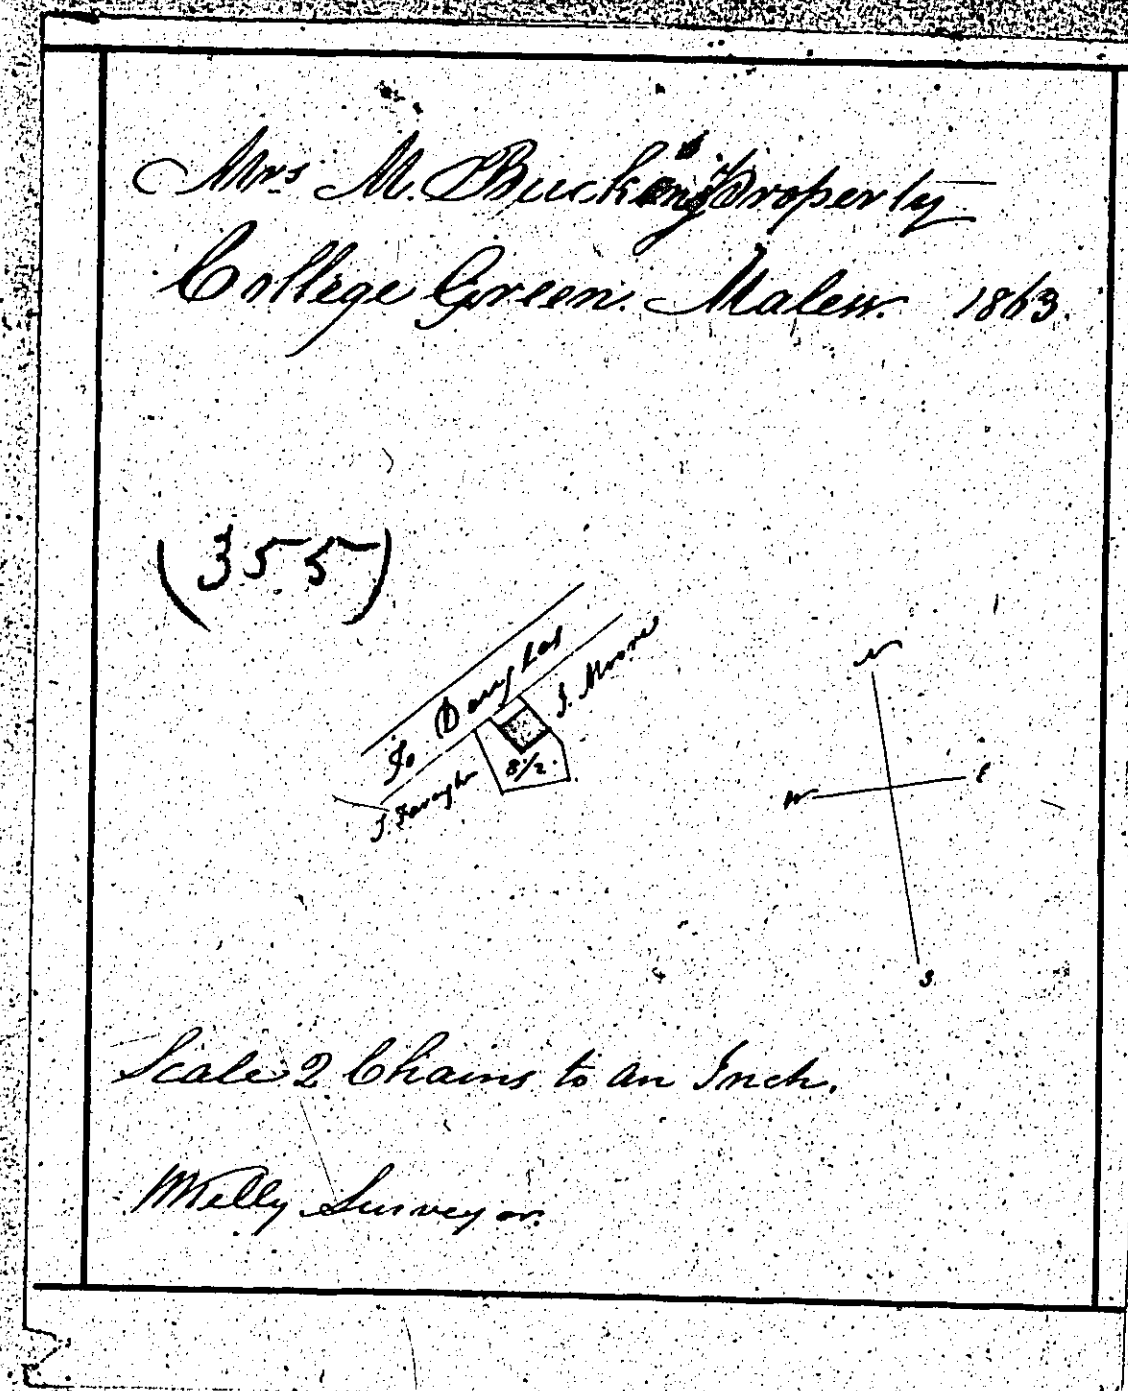 Mrs M. Property
College Green. Malew. 1863.
(355)
To Douglas
J. Moore
J. Faragher
8 1/2.
N
W
E
S
Scale 2 Chains to an Inch.
WKelly Surveyor.